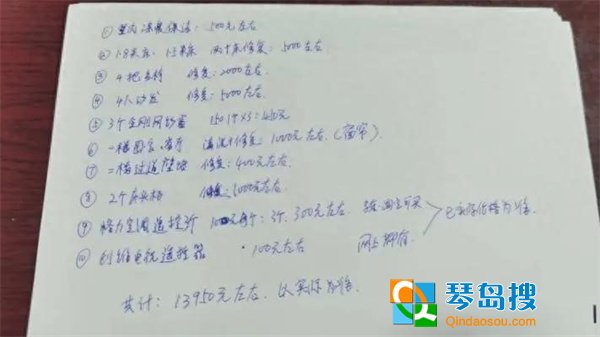 ① 室内深度保洁：500元左右
② 1.8米床，1.5米床 两个床修复：5000左右
③ 4把吉椅 修复：2000左右
④ 4人沙发 修复：5000左右.
⑤ 3个金刚网纱窗 150个×3：450元
⑥ 一楼 客厅 清洗+修复：1000元左右（窗帘）
⑦ 二楼过道壁 修复：400元左右
⑧ 2个床头柜 修复：1000元左右
⑨ 格力空调遥控器 100元每个：3个，300元左右
⑩ 创维电视遥控器 100元左右 网上都有
已实际价格为准.
共计：13950元左右. 以实际为准.
琴岛搜
Qindaosou.com